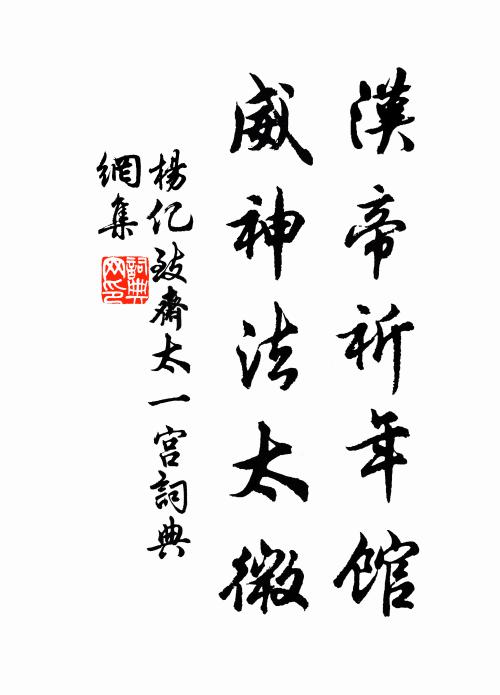 漢帝祈年館
威神法太微
楊億致齋太一宮詞典
網集
詞典網印